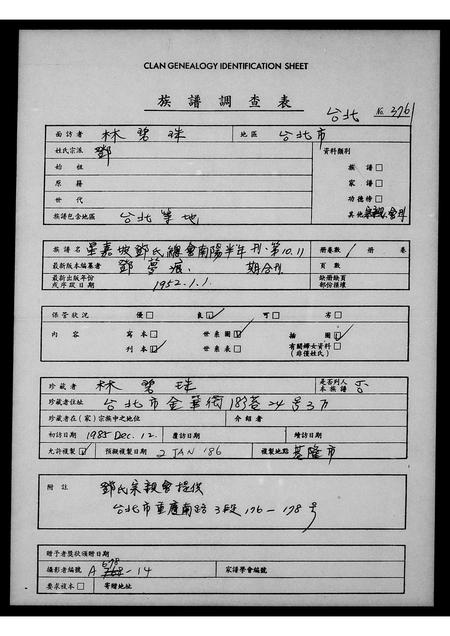 CLAN GENEALOGY IDENTIFICATION SHEET
族譜調查表
台北 No. 376
面訪者 林碧珠 地區 台北市
姓氏宗派 鄧 資料類別
始祖 族譜□
原籍 家譜□
世代 功德榜□
族譜包含地區 台北等地 其他 宗親會刊
族譜名 星嘉坡鄧氏總會南陽半年刊·第10.11 冊卷數 / 冊 卷
最新版本編纂者 鄧 期合刊 頁數
最新出版年份 或序跋日期 1952.1.1. 缺冊缺頁 部份描述
保管狀況 優□ 良☑ 可□ 劣□
內容 寫本□ 世系圖☑ 插圖☑
刊本☑ 世系表□ 有關婦女資料□ (非僅姓氏)
珍藏者 林碧珠 是否列入 本族譜 否
珍藏者住址 台北市金華街183巷24號3F
珍藏者在(家)宗族中之地位 介紹者
初訪日期 1985 Dec. 12. 覆訪日期 續訪日期
允許複製☑ 預擬複製日期 2 JAN '86 複製地點 基隆市
附註 鄧氏宗親會提供
台北市重慶南路3段176-178號
贈予者獎狀頒贈日期
攝影者編號 A 678-14 家譜學會編號
要求複本□ 寄贈地址